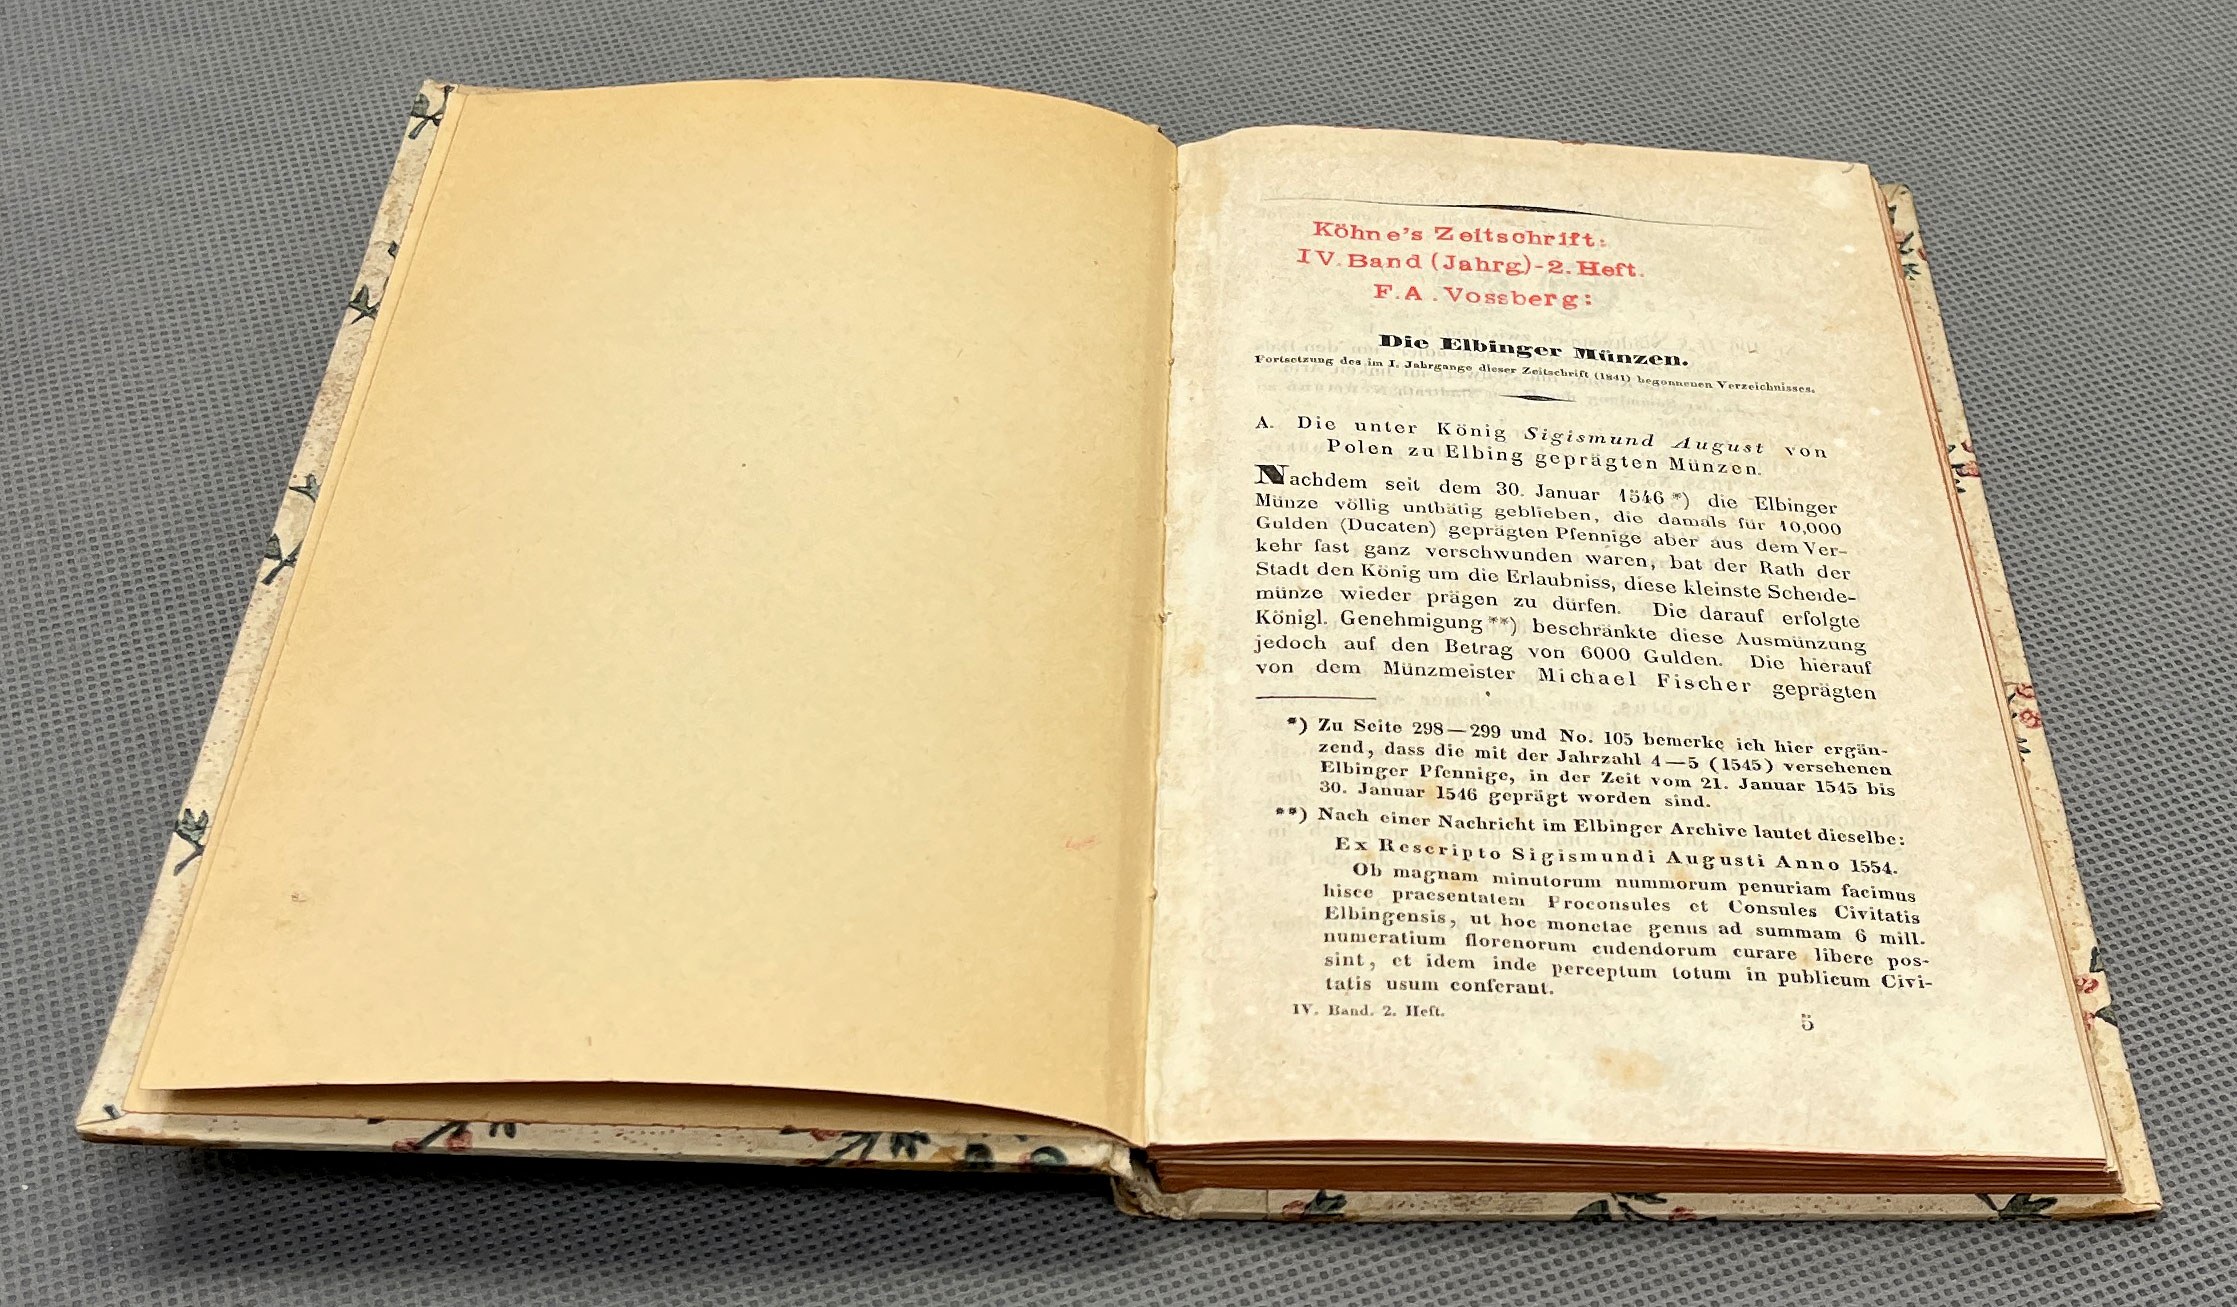 Köhne's Zeitschrift:
IV. Band (Jahrg.)-2. Heft.
F. A. Vossberg:
Die Elbinger Münzen.
Fortsetzung des im I. Jahrgange dieser Zeitschrift (1841) begonnenen Verzeichnisses.
A. Die unter König Sigismund August von
Polen zu Elbing geprägten Münzen.
Nachdem seit dem 30. Januar 1546 *) die Elbinger
Münze völlig unthätig geblieben, die damals für 10,000
Gulden (Ducaten) geprägten Pfennige aber aus dem Ver-
kehr fast ganz verschwunden waren, bat der Rath der
Stadt den König um die Erlaubniss, diese kleinste Scheide-
münze wieder prägen zu dürfen. Die darauf erfolgte
Königl. Genehmigung **) beschränkte diese Ausmünzung
jedoch auf den Betrag von 6000 Gulden. Die hierauf
von dem Münzmeister Michael Fischer geprägten
*) Zu Seite 298—299 und No. 105 bemerke ich hier ergän-
zend, dass die mit der Jahrzahl 4—5 (1545) versehenen
Elbinger Pfennige, in der Zeit vom 21. Januar 1545 bis
30. Januar 1546 geprägt worden sind.
**) Nach einer Nachricht im Elbinger Archive lautet dieselbe:
Ex Rescripto Sigismundi Augusti Anno 1554.
Ob magnam minutorum nummorum penuriam facimus
hisce praesentatem Proconsules et Consules Civitatis
Elbingensis, ut hoc monetae genus ad summam 6 mill.
numeratium florenorum cudendorum curare libere pos-
sint, et idem inde perceptum totum in publicum Civi-
tatis usum conferant.
IV. Band. 2. Heft.
5